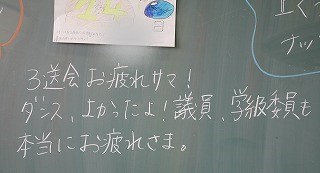 3送会お疲れサマ!
ダンス、よかったよ!議員、学級委員も
本当にお疲れさま。